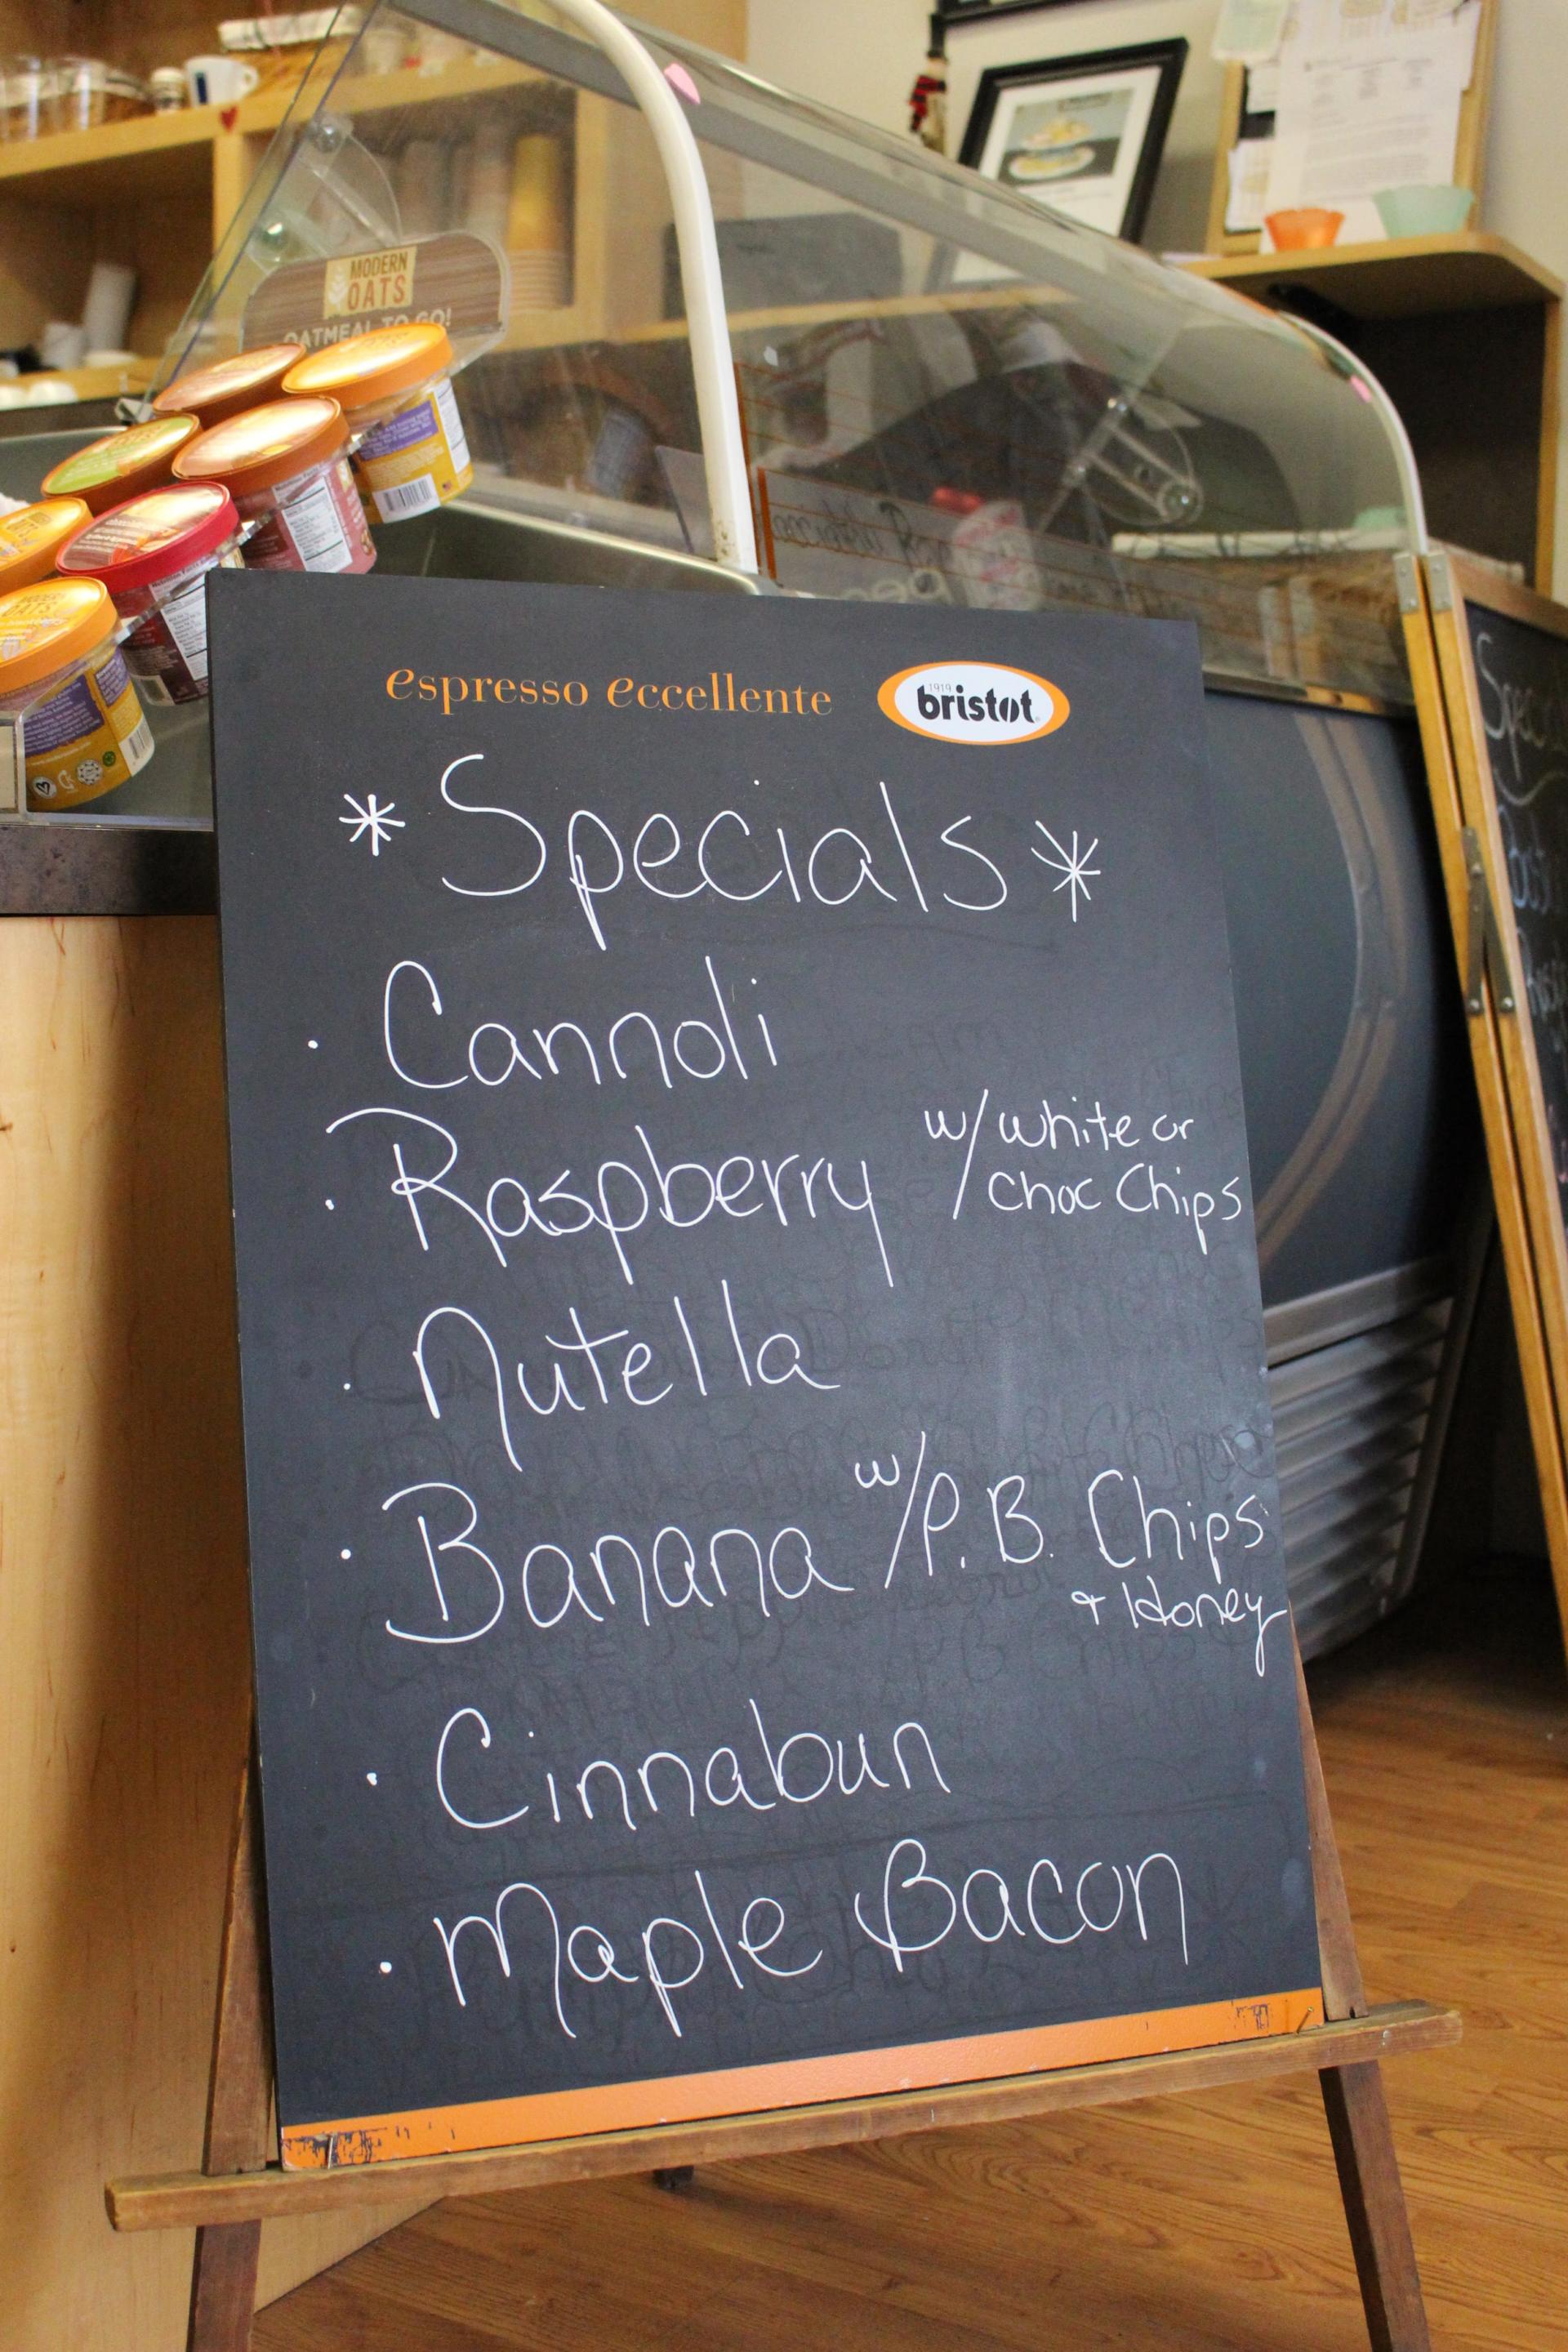 MODERN
OATS
OATMEAL TO GO!
espresso eccellente
1919
bristot
* Specials *
· Cannoli
· Raspberry w/ white or
choc Chips
· Nutella
· Banana w/ P.B. Chips
+ Honey
· Cinnabun
· Maple Bacon